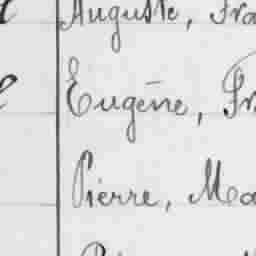 Auguste, Fra
Eugène, Fr
Pierre, Ma